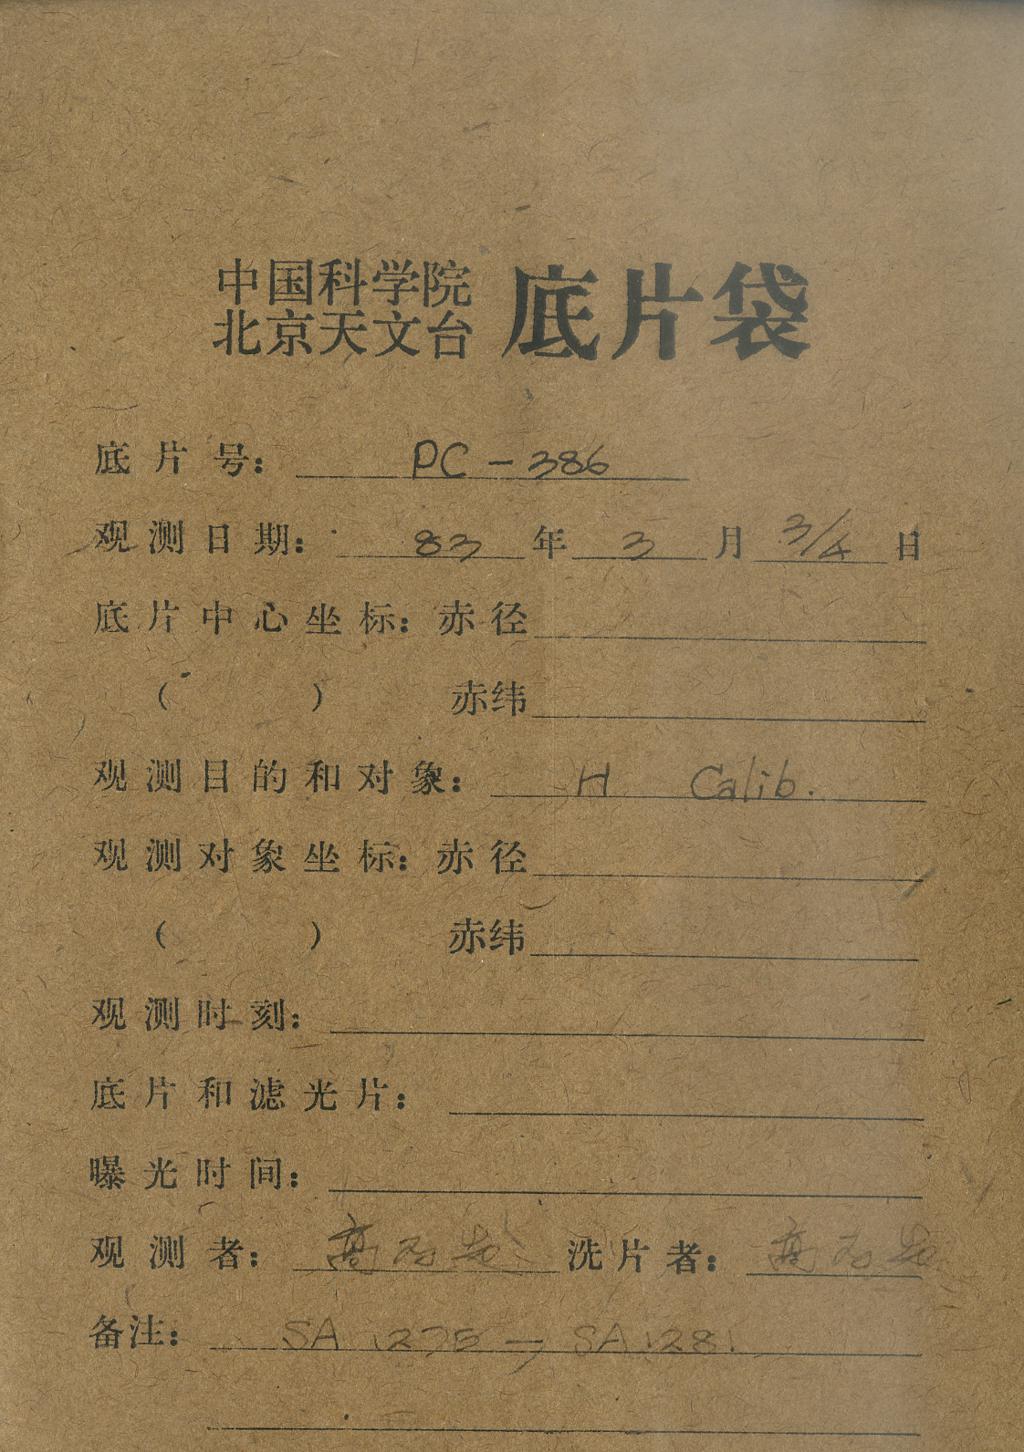 中国科学院
北京天文台 底片袋
底片号: PC-386
观测日期: 83 年 3 月 3/4 日
底片中心坐标: 赤径
( ) 赤纬
观测目的和对象: H Calib.
观测对象坐标: 赤径
( ) 赤纬
观测时刻:
底片和滤光片:
曝光时间:
观测者: 高 洗片者: 高
备注: SA 1275 — SA 1281